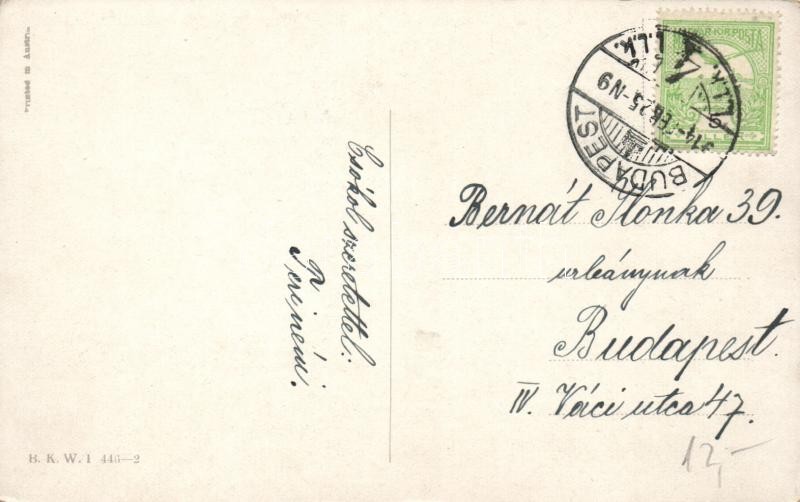 Printed in Austr
MAGYAR KIR. POSTA
BUDAPEST
914-FEB 25-N9
Bernát Ilonka 39.
urleánynak
Budapest.
IV. Váci utca 47.
Csókol szeretettel.
Teri néni.
B. K. W. I 446—2
12,-